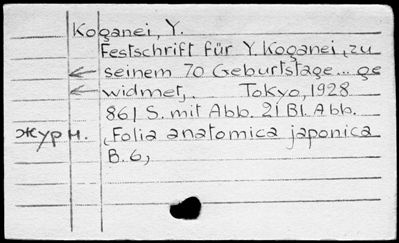 Koganei, Y.
Festschrift für Y. Koganei, zu
seinem 70 Geburtstage... ge
widmet,. Tokyo, 1928
861 S. mit Abb. 21 Bl. Abb.
журн. (Folia anatomica japonica
B. 6,